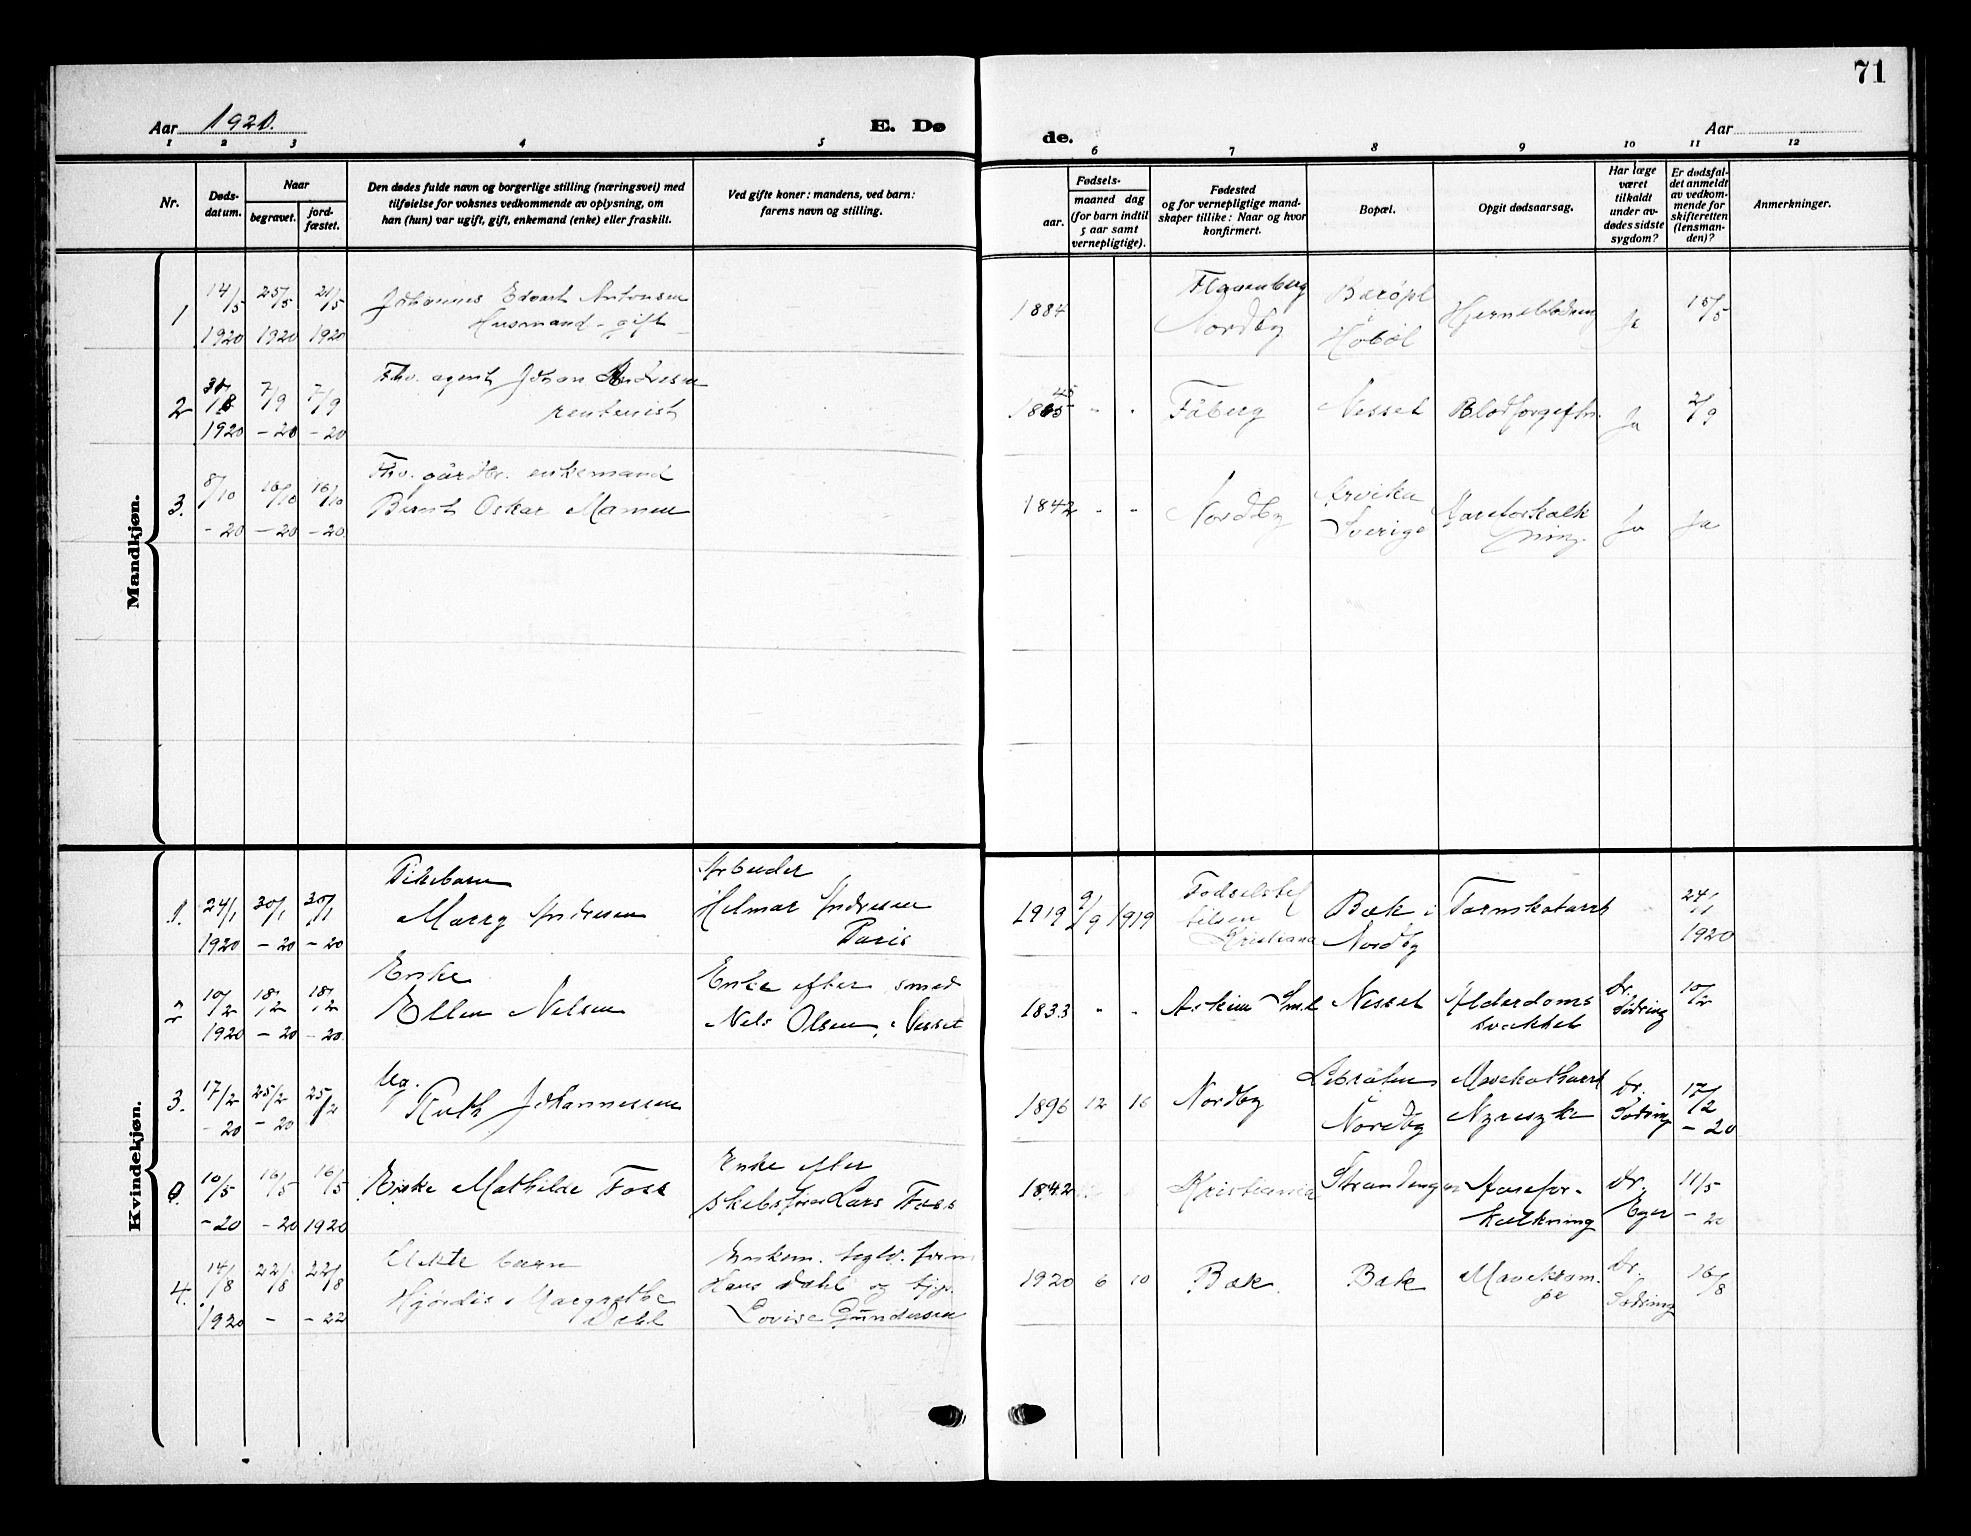 71
Aar 1920.
E. Dø
de.
Aar
1 2 3 4 5 6 7 8 9 10 11 12
Nr.
Døds-
datum.
Naar
begravet.
jord-
fæstet.
Den dødes fulde navn og borgerlige stilling (næringsvei) med
tilføielse for voksnes vedkommende av oplysning, om
han (hun) var ugift, gift, enkemand (enke) eller fraskilt.
Ved gifte koner: mandens, ved barn:
farens navn og stilling.
Fødsels-
aar.
maaned dag
(for barn indtil
5 aar samt
vernepligtige).
Fødested
og for vernepligtige mand-
skaper tillike: Naar og hvor
konfirmert.
Bopæl.
Opgit dødsaarsag.
Har læge
været
tilkaldt
under av-
dødes sidste
sygdom?
Er dødsfal-
det anmeldt
av vedkom-
mende for
skifteretten
(lensman-
den)?
Anmerkninger.
Mandkjøn.
1
14/5 25/5 21/5
1920 1920 1920
Johannes Edvart Antonsen
Husmand - gift
1884
Nordby
Hobøl
Hjerneblødning
Ja
15/5
2
31/8 7/9 7/9
1920 - 20 - 20
Fhv. agent Johan Andresen
rentenist
45
" "
Fåberg
Nesset
Blodforgiftn.
Ja
2/9
3.
8/10 16/10 16/10
- 20 - 20 - 20
Fhv. gårdbr. enkemand
Bernt Oskar Mamen
1842 " "
Nordby
Arvika
Sverige
Ja
Ja
Kvindekjøn.
1.
24/1 30/1 30/1
1920 - 20 - 20
Pikebarn
Marry Andresen
Arbeider
Hilmar Andresen
Paris
1919 9/9 1919
Fødselsst
Kristiania
Bæk i
Nordby
Tarmkatarrh
24/1
1920
2
10/2 18/2 18/2
1920 - 20 - 20
Enke
Ellen Nelsen
Enke efter smed
Nels Olsen, Nesset
1833 " "
Askim Sml
Nesset
Alderdoms
svækket
Dr.
Sødring
10/2
3.
17/2 25/2 25/2
- 20 - 20
Ug.
Ruth Johannessen
1896 12 16
Nordby
Nordby
Mavekatharrh
Nyresyke
Dr.
Sødring
17/2
- 20
10/5 16/5 16/5
- 20 - 20 1920
Enke Mathilde Foss
Enke efter
skibsfører Lars Foss
1842
Kristiania
Strandengen
Aarefor-
kalkning
Dr.
Eger
11/5
- 20
4.
14/8 22/8 22/8
1920 - - 22
Uekte barn
Hjørdis Margrethe
Dahl
Enkem. teglv. form
Hans Dahl og tjp.
Lovise Gundersen
1920 6 10
Bæk
Bæk
Mavekram-
pe
Dr.
Sødring
16/8